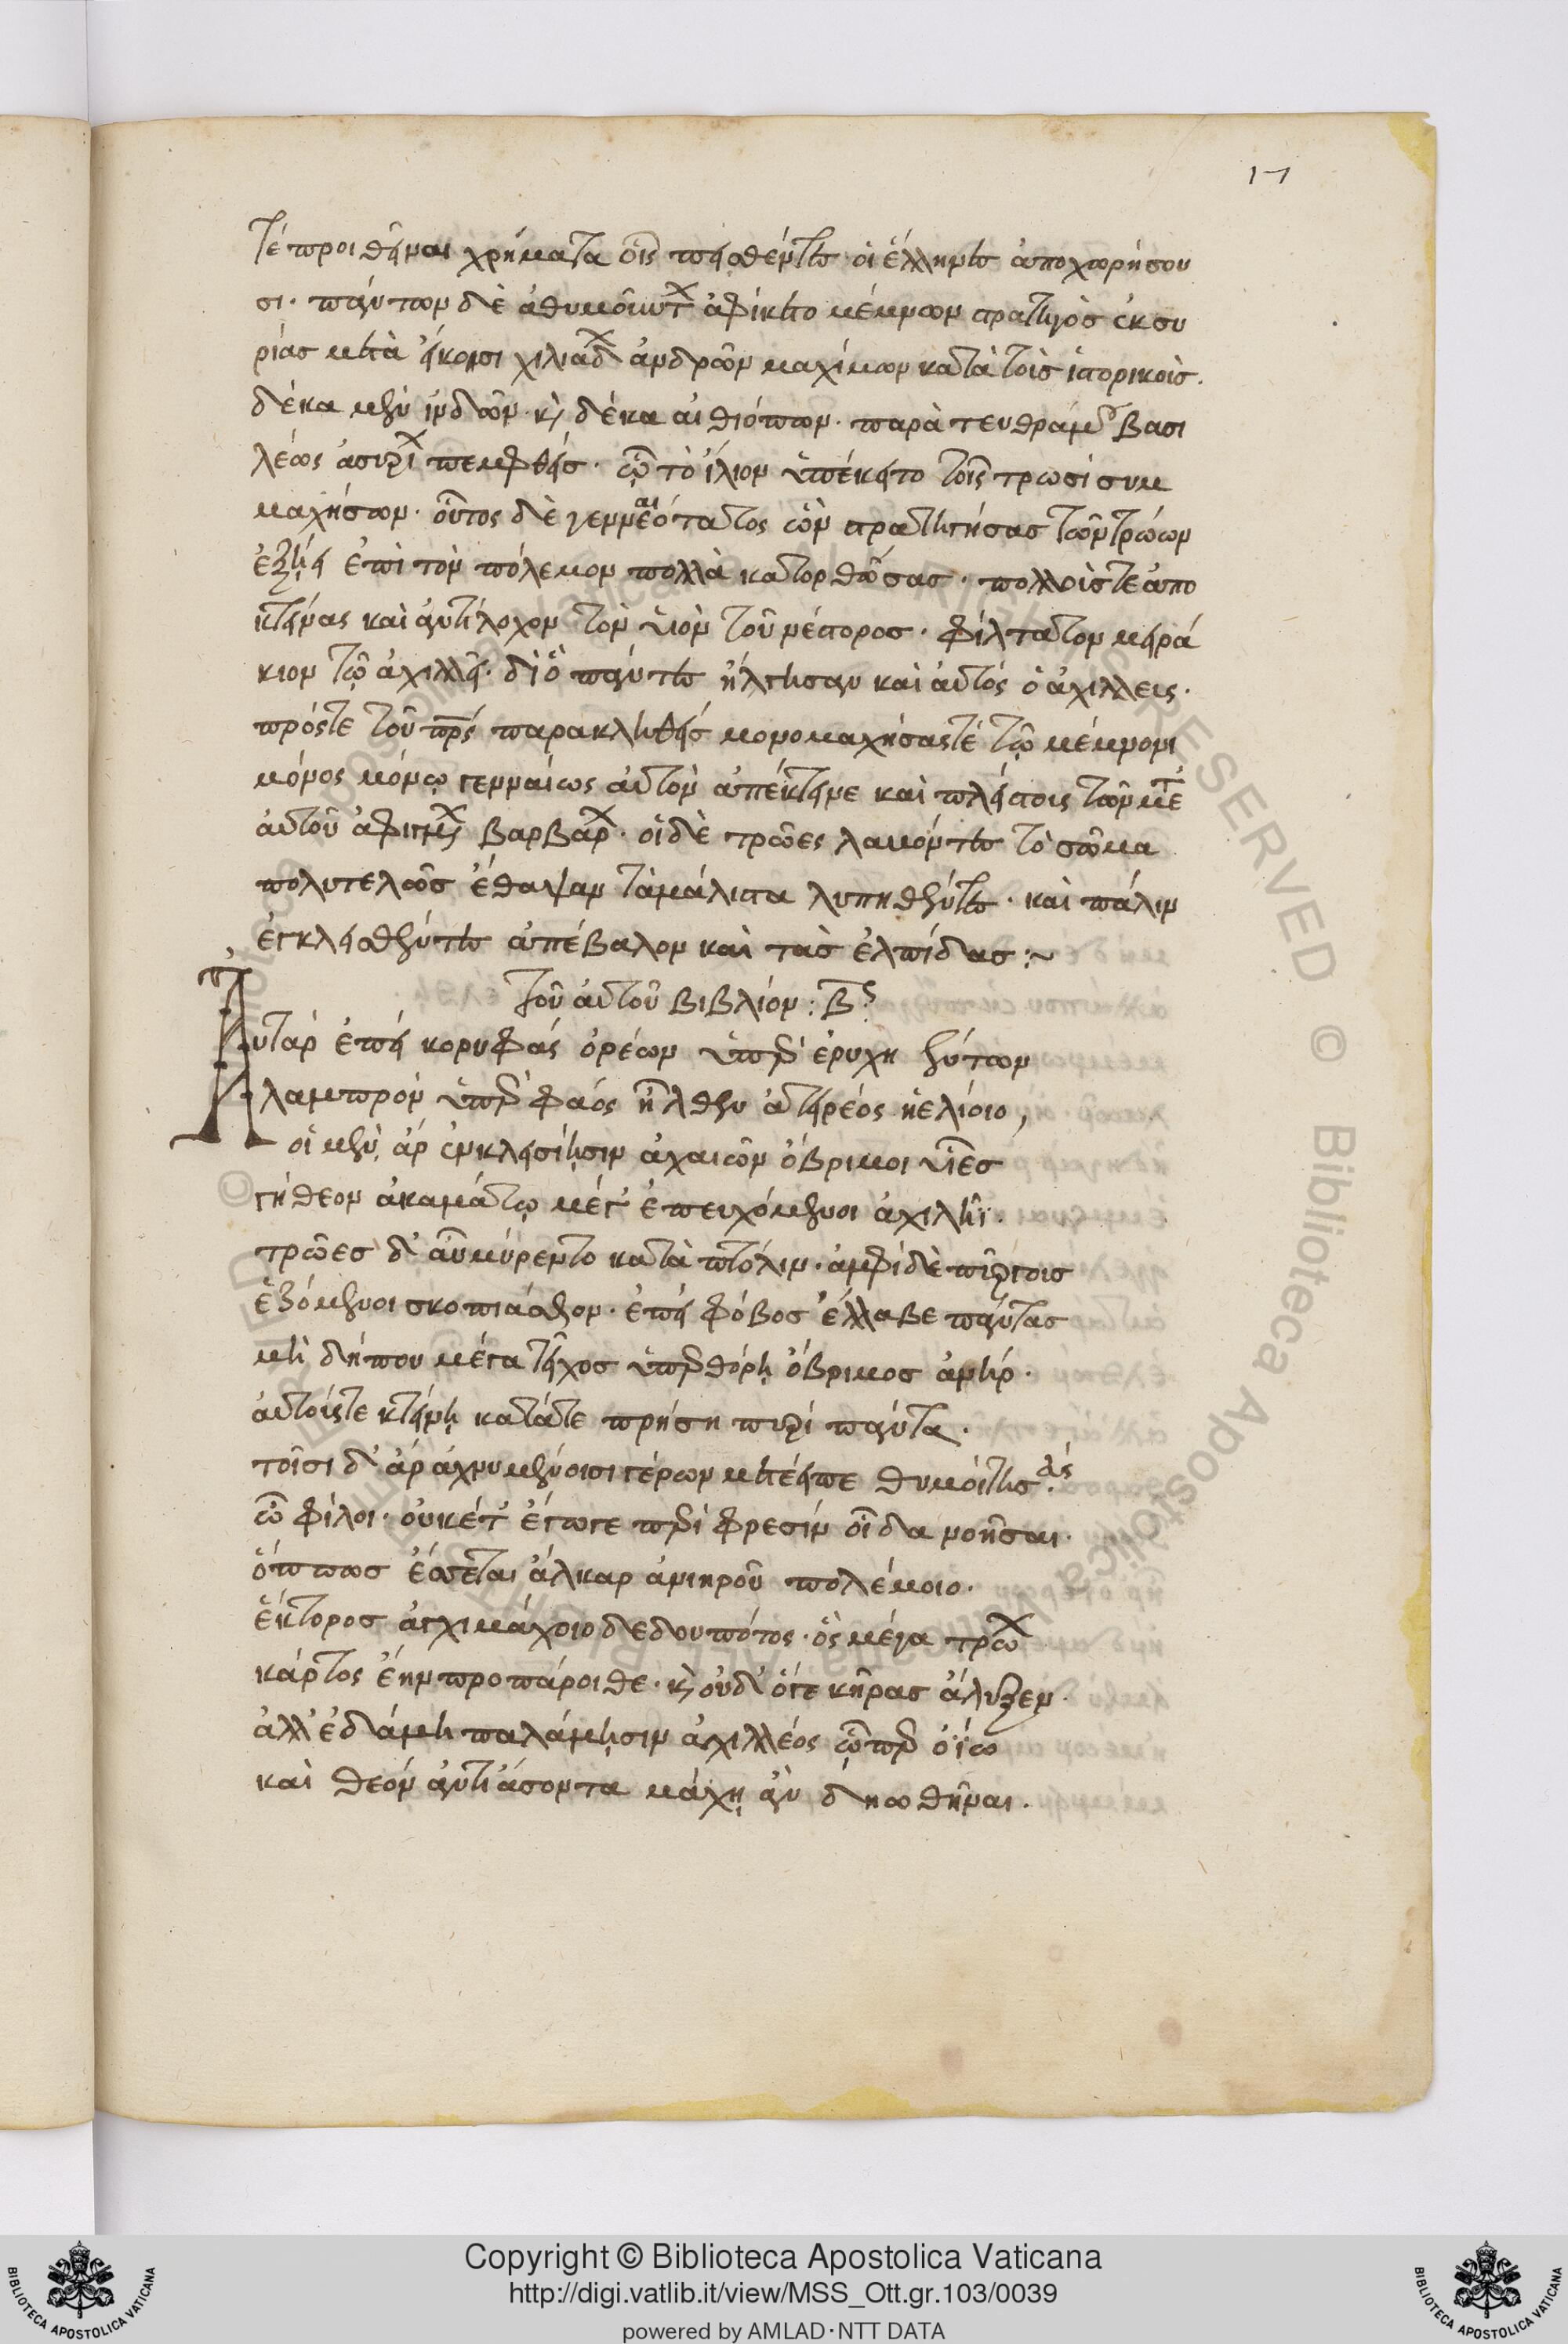 17
τέ προιθῆναι χρήματα οἷς πεισθέντες οἱ ἕλληνες ἀποχωρήσου
σι. πάντων δὲ ἀθυμούντων ἀφίκετο μέμνων στρατηγὸς ἐκ συ
ρίας μετὰ εἴκοσι χιλιάδων ἀνδρῶν μαχίμων κατὰ τοὺς ἱστορικοὺς.
δέκα μὲν ἰνδῶν. καὶ δέκα αἰθιόπων. παρὰ τευθράμου βασι
λέως ἀσυρίων πεμφθείς. ᾧ τὸ ἴλιον ὑπέκειτο τοῖς τρωσὶ συμ
μαχήσων. οὗτος δὲ γενναιότατος ὢν στρατηγήσας τῶν τρώων
ἐξῄει ἐπὶ τὸν πόλεμον πολλὰ κατορθώσας. πολλούς τε ἀπο
κτείνας καὶ ἀντίλοχον τὸν υἱὸν τοῦ νέστορος. φίλτατον μειρά
κιον τῷ ἀχιλλεῖ. διὸ πάντες ἤλγησαν καὶ αὐτός ὁ ἀχιλλεὺς.
πρός τε τοῦ πρς παρακληθείς μονομαχήσας τέ τῷ μέμνονι
μόνος μόνῳ γενναίως αὐτὸν ἀπέκτεινε καὶ πλείστοις τῶν μετ
αὐτοῦ ἀφιγμένων βαρβάρων. οἱ δὲ τρῶες λαβόντες τὸ σῶμα
πολυτελῶς ἔθαψαν τὰ μάλιστα λυπηθέντες. καὶ πάλιν
ἐγκλεισθέντες ἀπέβαλον καὶ τὰς ἐλπίδας :~
Τοῦ αὐτοῦ βιβλίον : β
Αὐτὰρ ἐπεὶ κορυφάς ὀρέων ὑπὲρ ἐρυχηέντων
λαμπρὸν ὑπὲρ φάος ἦλθεν ἀτειρέος ἠελίοιο,
οἱ μὲν ἀρ ἐνκλεισίῃσιν ἀχαιῶν ὄβριμοι υἷες
γήθεον ἀκαμάτῳ μέγ᾽ ἐπευχόμενοι ἀχιλῆϊ.
τρῶες δ᾽ αὖ μύρεντο κατὰ πτόλιν. ἀμφὶ δὲ πύργοις
ἑζόμενοι σκοπιάσζον. ἐπεὶ φόβος ἔλλαβε πάντας
μὴ δή που μέγα τεῖχος ὑπερθόρῃ ὄβριμος ἀνήρ.
αὐτούς τε κτείνῃ κατά τε πρήσῃ πυρὶ πάντα.
τοῖσι δ᾽ ἀρ ἀχνυμένοισι γέρων μετέειπε θυμοίτης.
ὦ φίλοι. οὐκέτ᾽ ἔγωγε περὶ φρεσίν οἶδα νοῆσαι.
ὅππως ἔσσεται ἄλκαρ ἀνιηροῦ πολέμοιο.
ἕκτορος ἀγχιμάχοιο δεδουπότος. ὃς μέγα τρώων
κάρτος ἔην προπάροιθε. καὶ οὐδ᾽ ὅγε κῆρας ἄλυξεν.
ἀλλ᾽ ἐδάμη παλάμῃσιν ἀχιλλέος ᾧ περ ὀΐω
καὶ θεόν ἀντιάσοντα μάχῃ ἀν δηωθῆναι.
Copyright © Biblioteca Apostolica Vaticana
http://digi.vatlib.it/view/MSS_Ott.gr.103/0039
powered by AMLAD·NTT DATA